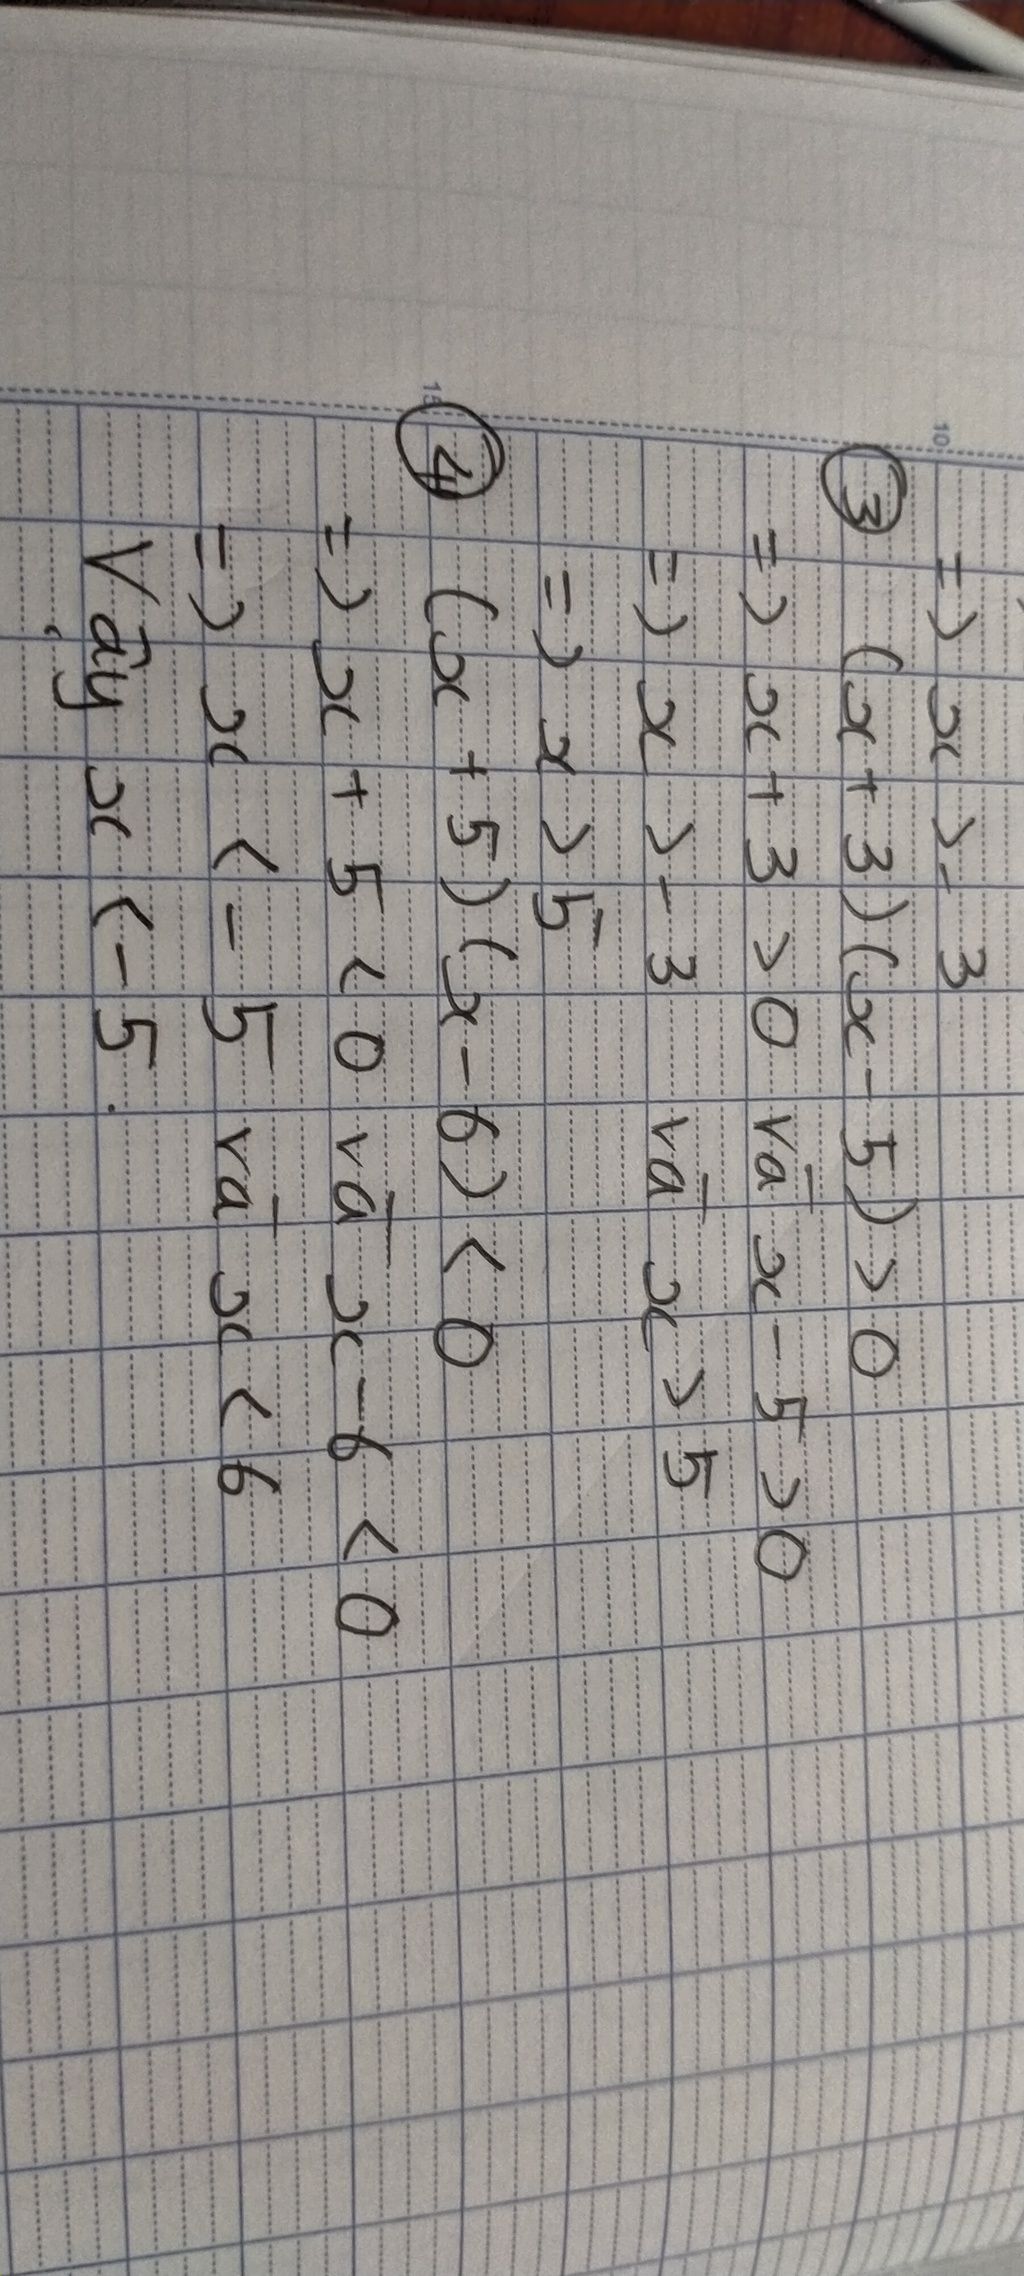 10
=> x > - 3
3 (x + 3)(x - 5) > 0
=> x + 3 > 0 và x - 5 > 0
=> x > - 3 và x > 5
=> x > 5
15
4 (x + 5)(x - 6) < 0
=> x + 5 < 0 và x - 6 < 0
=> x < - 5 và x < 6
Vậy x < - 5.